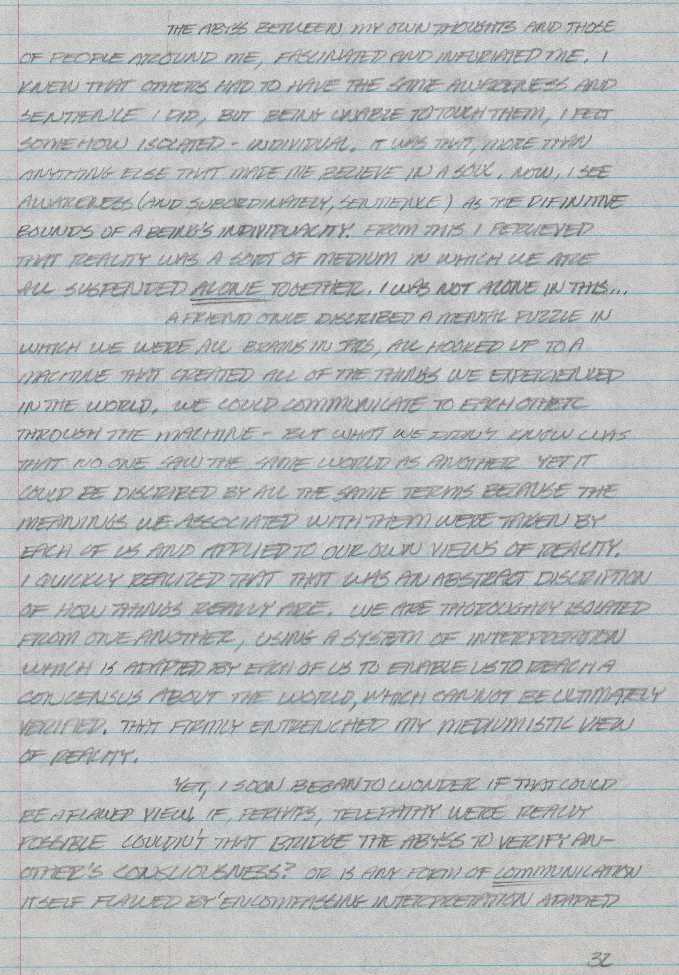 THE ABYSS BETWEEN MY OWN THOUGHTS AND THOSE
OF PEOPLE AROUND ME, FASCINATED AND INFURIATED ME. I
KNEW THAT OTHERS HAD TO HAVE THE SAME AWARENESS AND
SENTIENCE I DID, BUT BEING UNABLE TO TOUCH THEM, I FELT
SOMEHOW ISOLATED - INDIVIDUAL. IT WAS THAT, MORE THAN
ANYTHING ELSE THAT MADE ME BELIEVE IN A SOUL. NOW, I SEE
AWARENESS (AND SUBORDINATELY, SENTIENCE) AS THE DIFINITIVE
BOUNDS OF A BEING'S INDIVIDUALITY. FROM THIS I PERCIEVED
THAT REALITY WAS A SORT OF MEDIUM IN WHICH WE ARE
ALL SUSPENDED ALONE TOGETHER. I WAS NOT ALONE IN THIS...
A FRIEND ONCE DISCRIBED A MENTAL PUZZLE IN
WHICH WE WERE ALL BRAINS IN JARS, ALL HOOKED UP TO A
MACHINE THAT CREATED ALL OF THE THINGS WE EXPERIENCED
IN THE WORLD. WE COULD COMMUNICATE TO EACH OTHER
THROUGH THE MACHINE - BUT WHAT WE DIDN'T KNOW WAS
THAT NO ONE SAW THE SAME WORLD AS ANOTHER YET IT
COULD BE DISCRIBED BY ALL THE SAME TERMS BECAUSE THE
MEANINGS WE ASSOCIATED WITH THEM WERE TAKEN BY
EACH OF US AND APPLIED TO OUR OWN VIEWS OF REALITY.
I QUICKLY REALIZED THAT THAT WAS AN ABSTRACT DISCRIPTION
OF HOW THINGS REALLY ARE. WE ARE THOROUGHLY ISOLATED
FROM ONE ANOTHER, USING A SYSTEM OF INTERPRETATION
WHICH IS ADAPTED BY EACH OF US TO ENABLE US TO REACH A
CONCENSUS ABOUT THE WORLD, WHICH CANNOT BE ULTIMATELY
VERIFIED. THAT FIRMLY ENTRENCHED MY MEDIUMISTIC VIEW
OF REALITY.
YET, I SOON BEGAN TO WONDER IF THAT COULD
BE A FLAWED VIEW. IF, PERHAPS, TELEPATHY WERE REALLY
POSSIBLE COULDN'T THAT BRIDGE THE ABYSS TO VERIFY AN-
OTHER'S CONSCIOUSNESS? OR IS ANY FORM OF COMMUNICATION
ITSELF FLAWED BY ENCOMPASSING INTERPRETATION ADAPTED
32